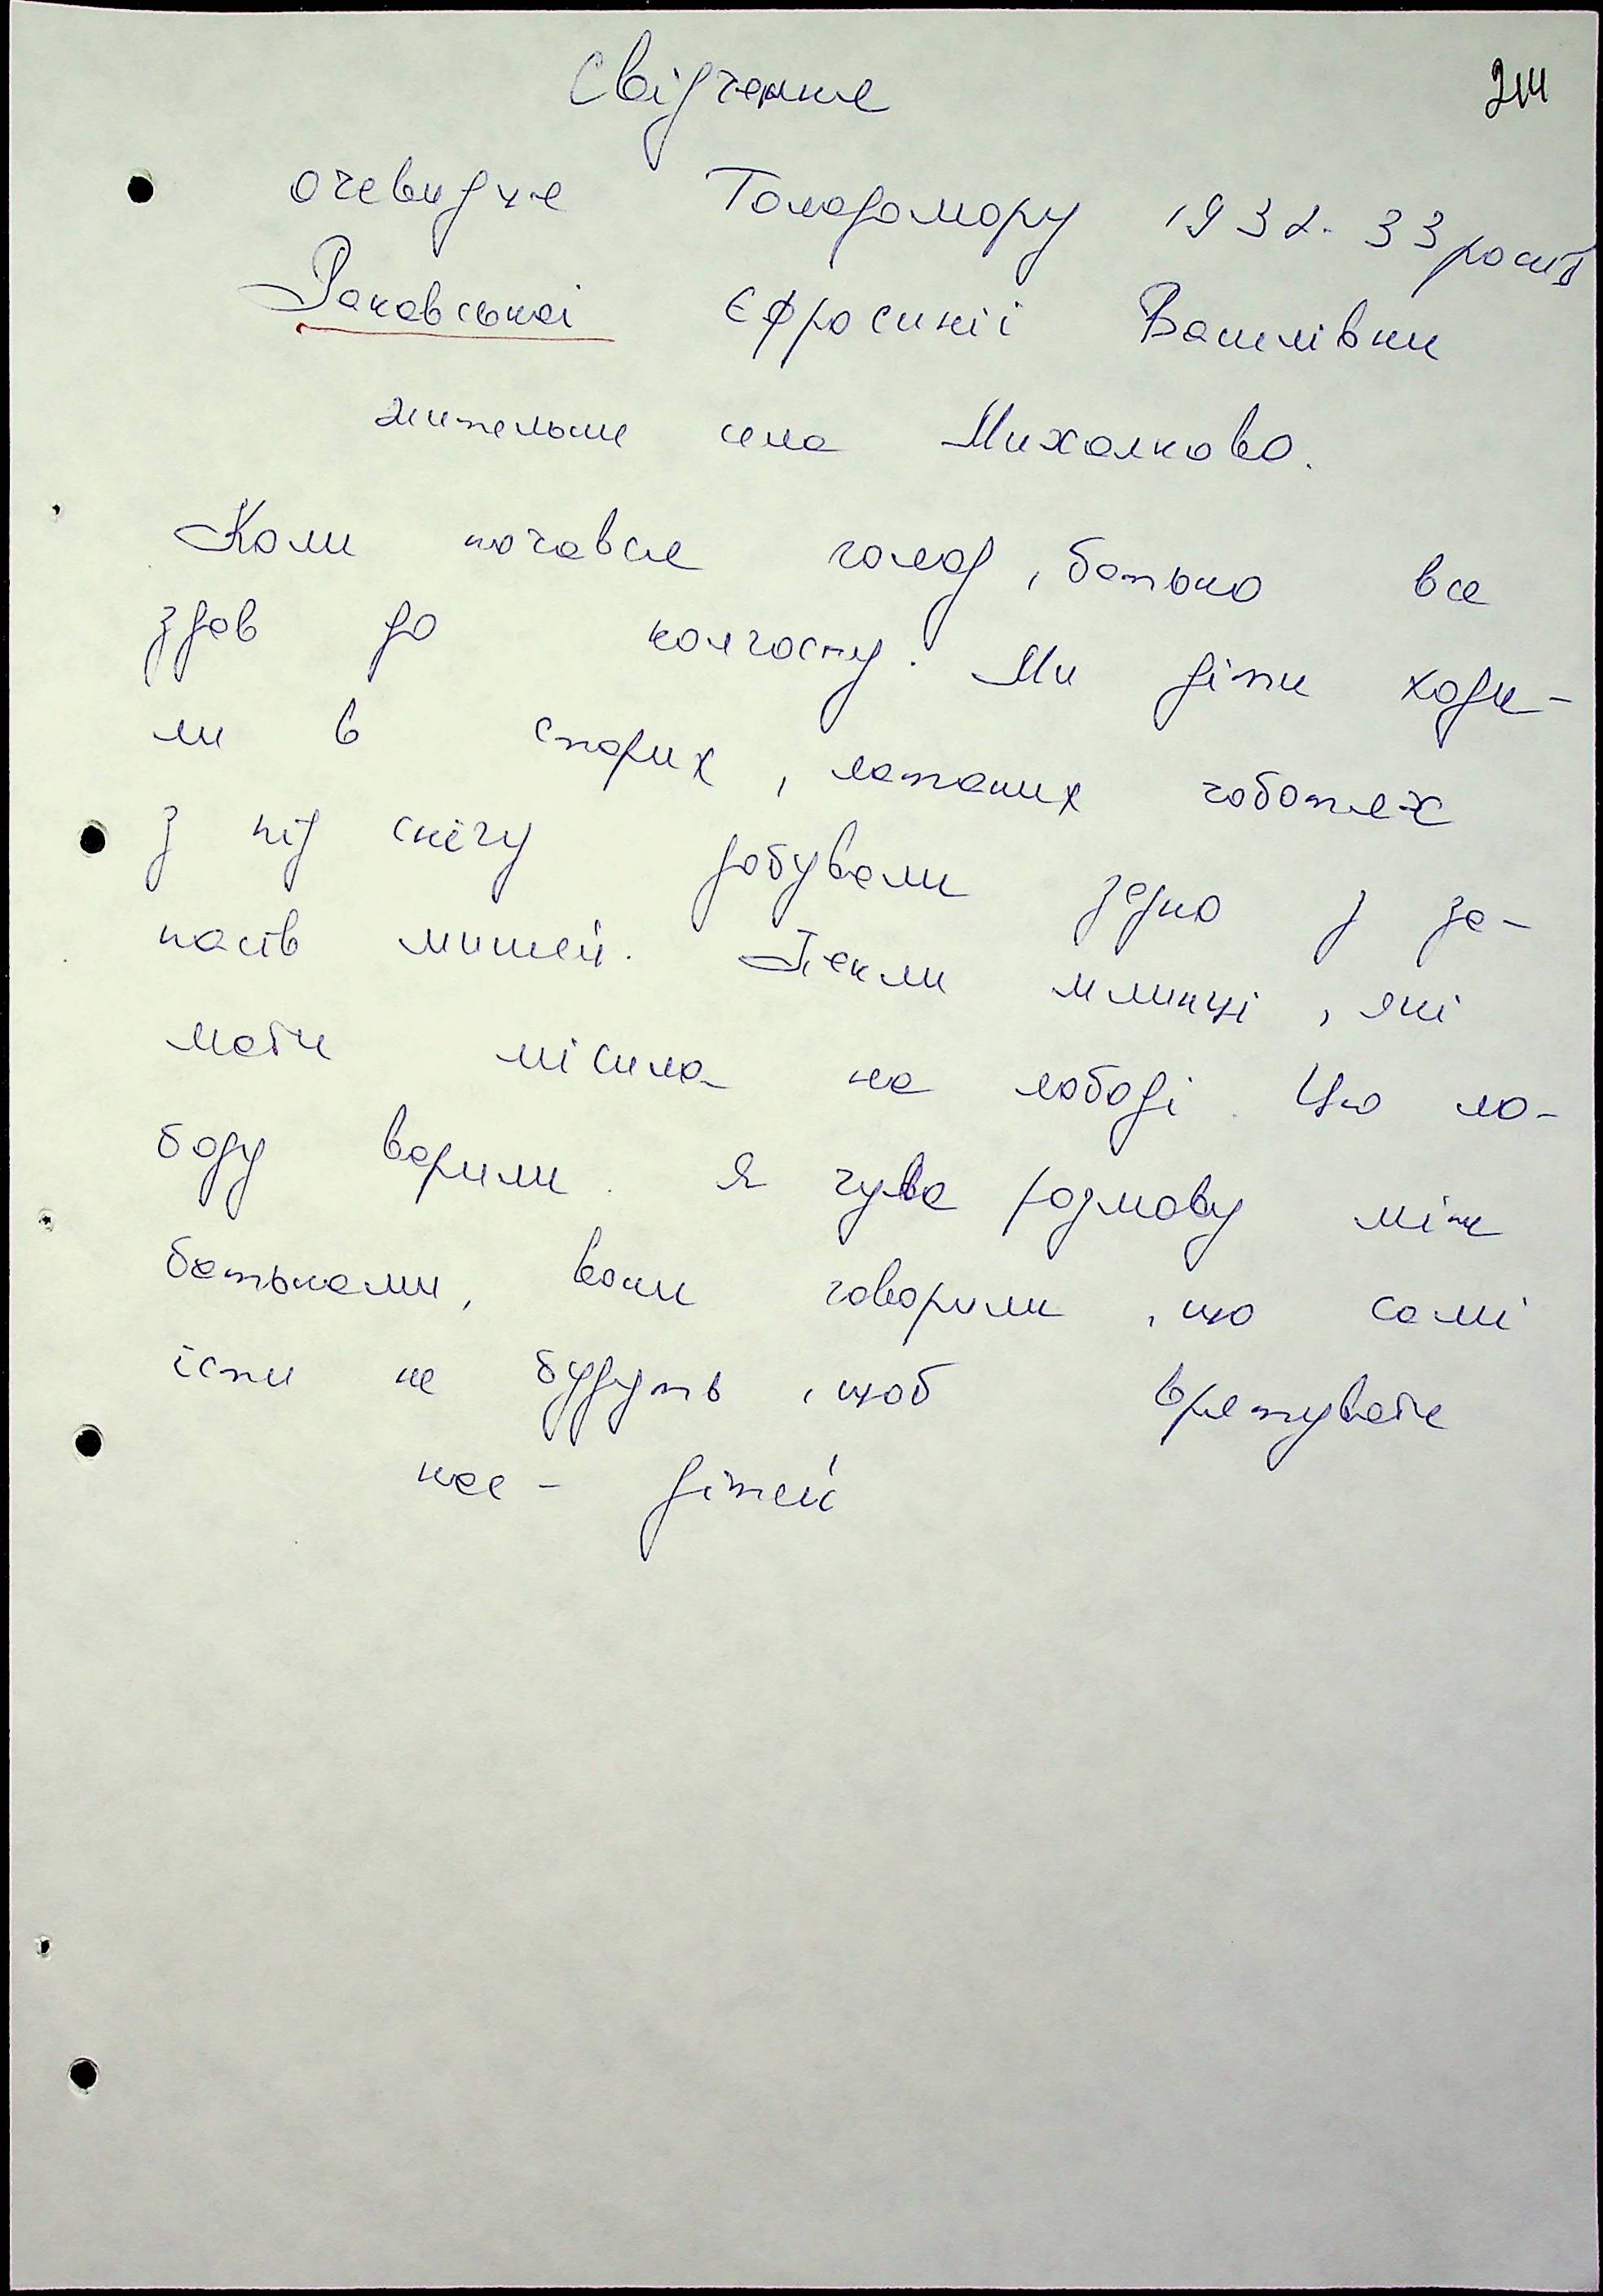 214
Свідчення
очевидця Голодомору 1932-33 років
Раковської Єфросинії Василівни
жительки села Михалково.
Коли почався голод, батько все
здав до колгоспу. Ми діти ходи-
ли в старих, латаних чоботях
з під снігу добували зерно з за-
пасів мишей. Пекли млинці, які
мати місила на лободі. Цю ло-
боду варили. Я чула розмову між
батьками, вони говорили, що самі
їсти не будуть, щоб врятувати
нас - дітей